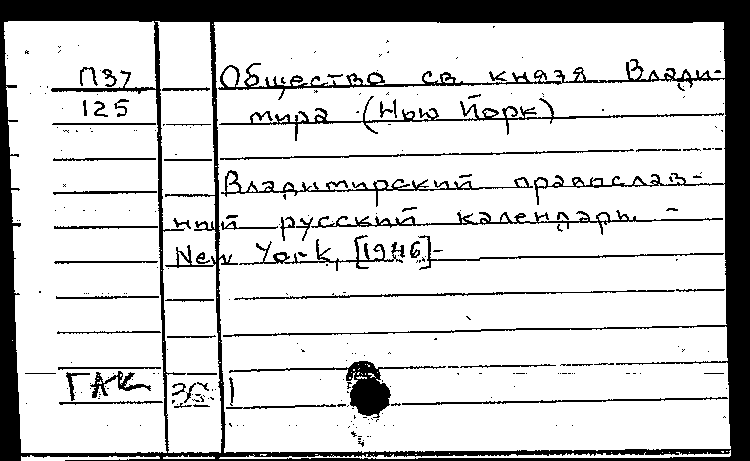 П37
125
Общество св. князя Влади-
мира (Нью Йорк)
Владимирский православ-
ный русский календарь. -
New York, [1946]-
ГАК